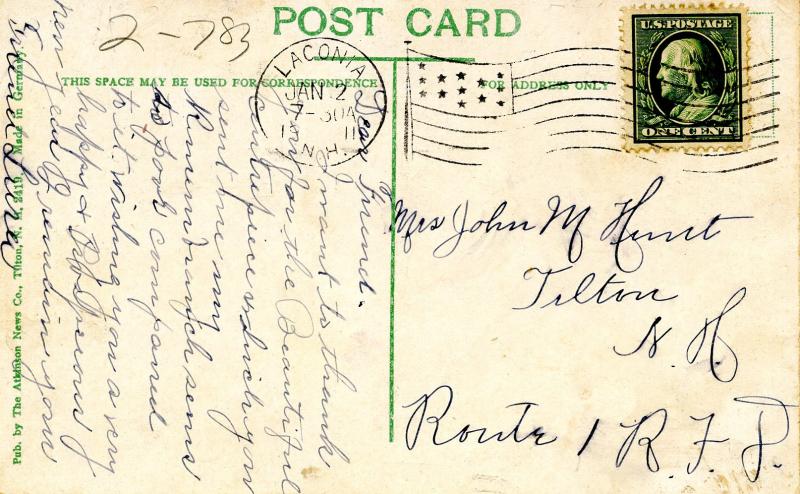 2-783
POST CARD
THIS SPACE MAY BE USED FOR CORRESPONDENCE
FOR ADDRESS ONLY
LACONIA
JAN 2
30A
11
N.H.
U.S. POSTAGE
ONE CENT
Mrs John M Hunt
Tilton
N. H.
Route 1 R. F. D.
Dear Friend.
I want to thank
you for the Beautiful
Centre piece which you
sent me my
to poor compared
to it. wishing you a very
happy & Prosperous
new year I remain your
Friend
Pub. by The Atkinson News Co., Tilton, N. H. 2419. Made in Germany